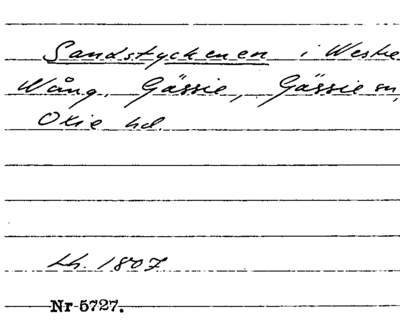 Sandstyckenen i Westre
Wång. Gässie, Gässie sn,
Oxie hd.
Lh. 1807
Nr 5727.